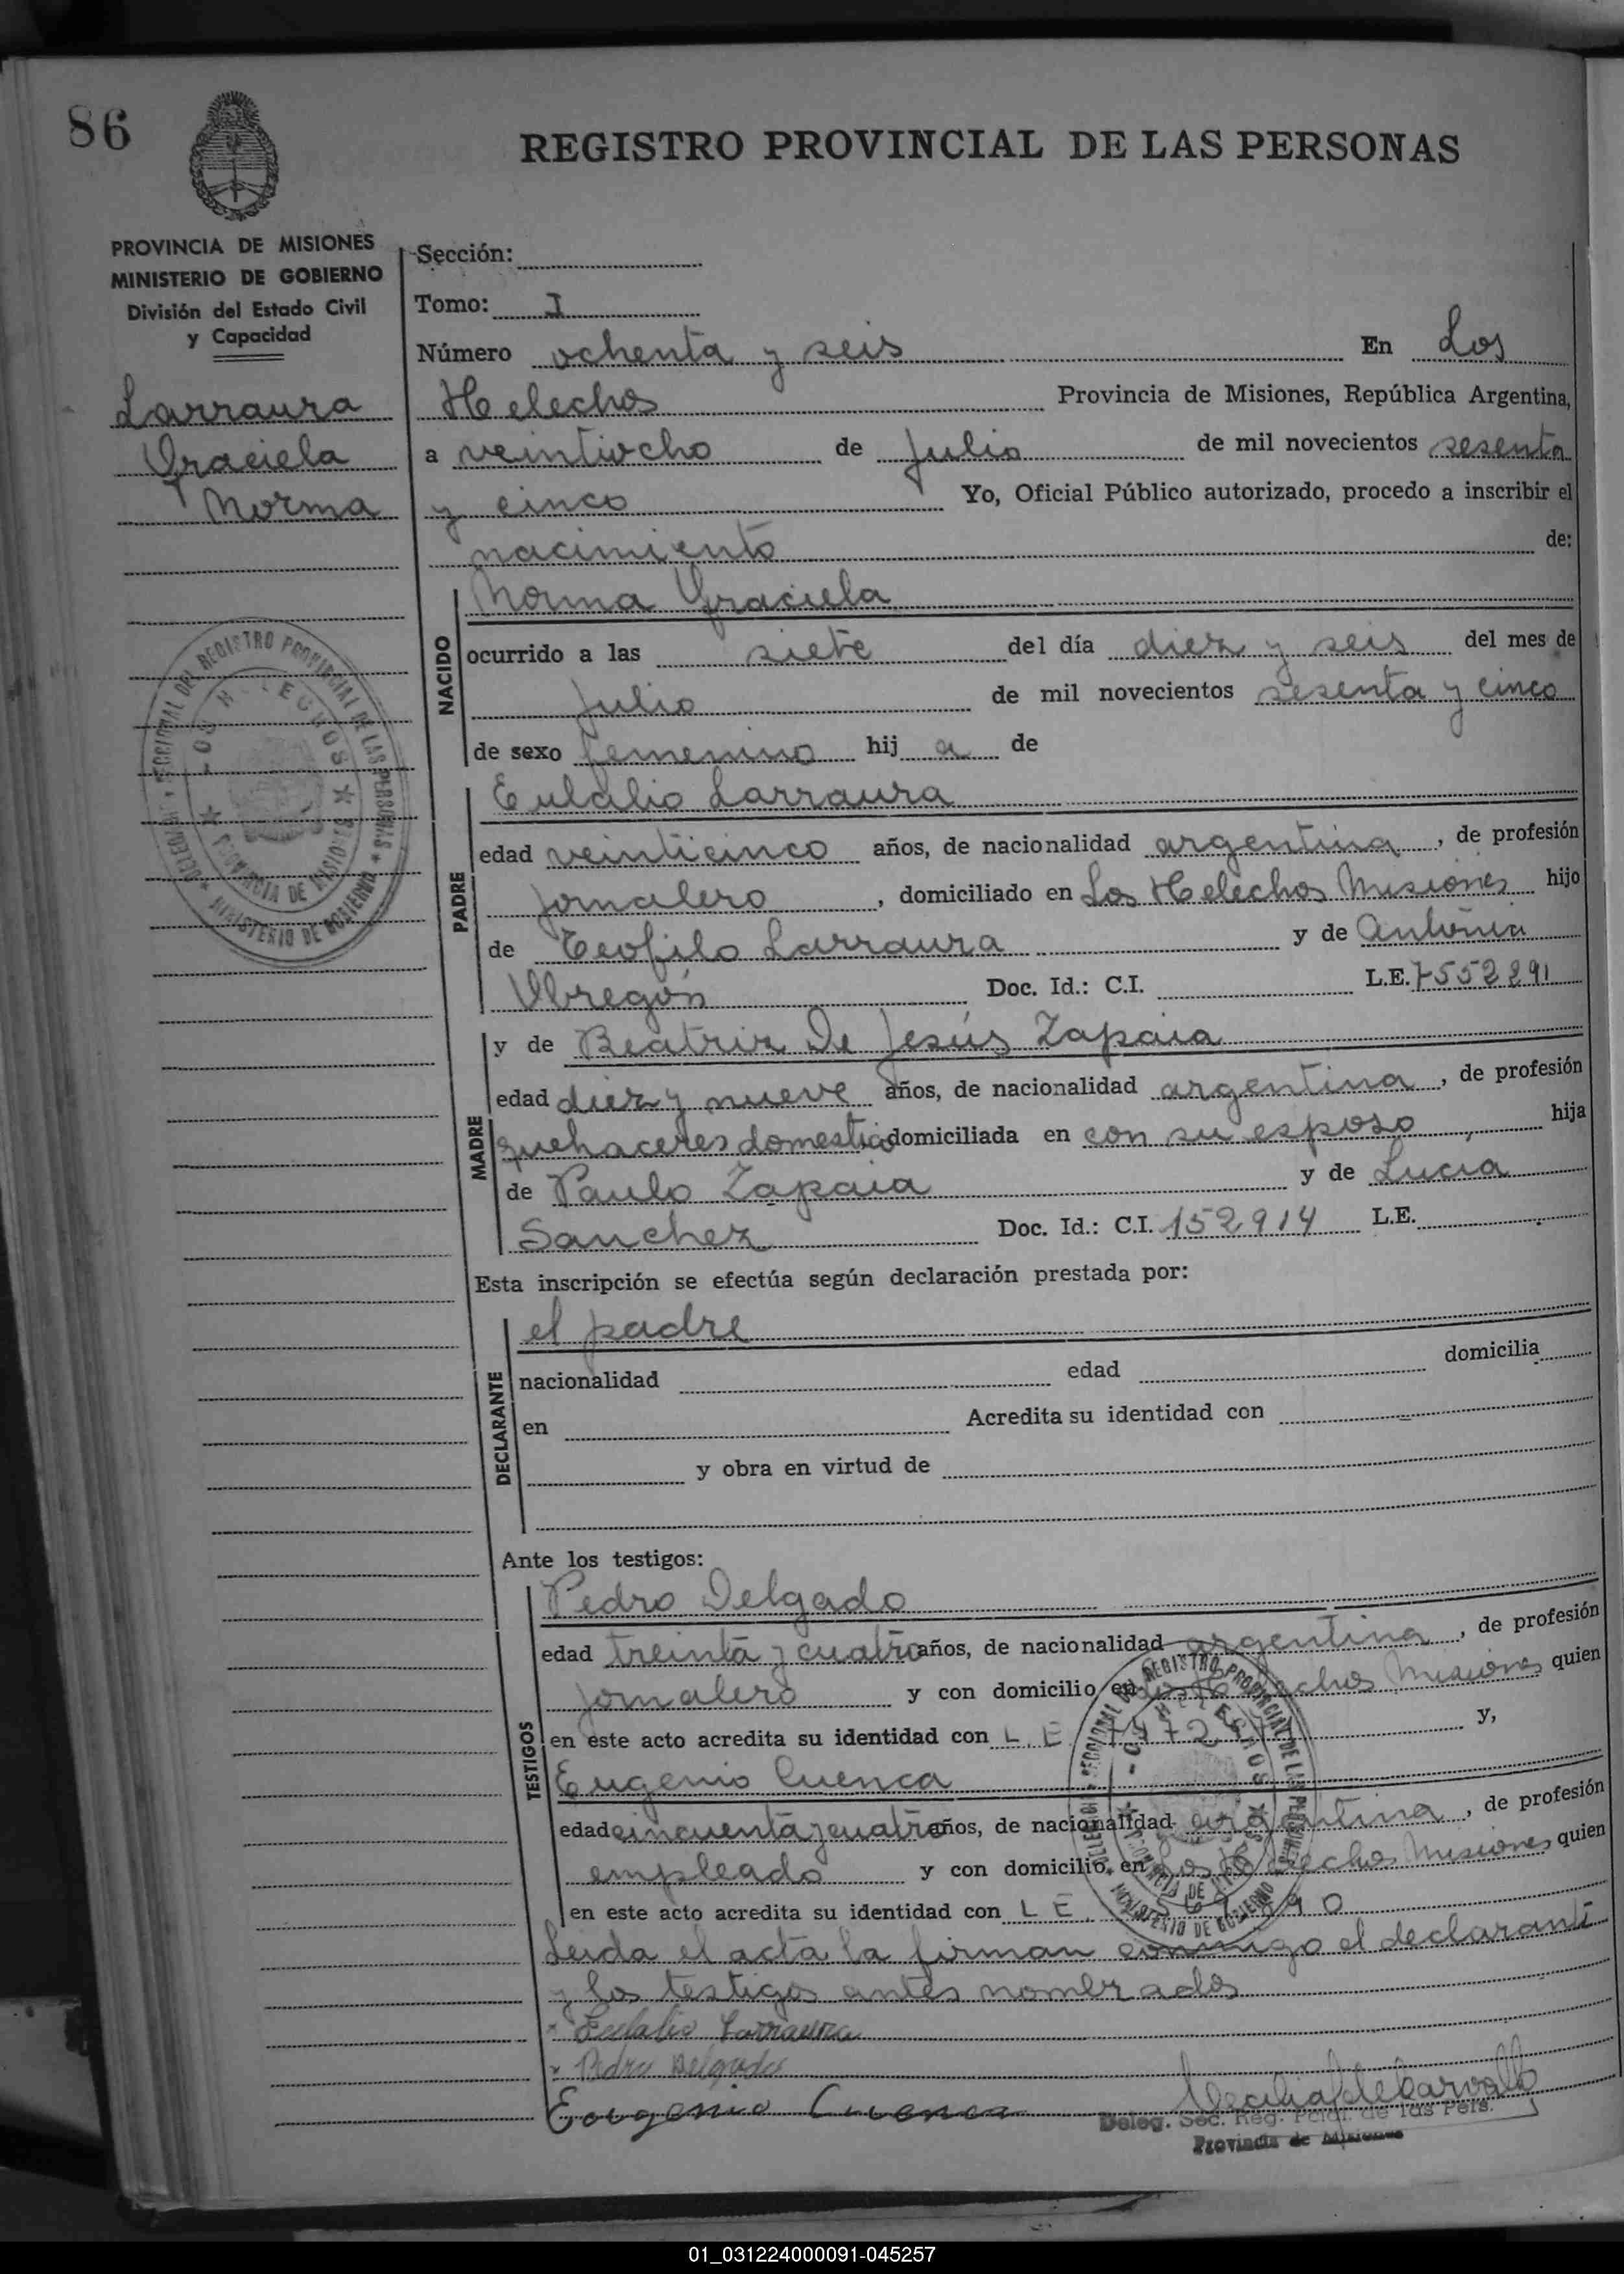 86
REGISTRO PROVINCIAL DE LAS PERSONAS
PROVINCIA DE MISIONES
MINISTERIO DE GOBIERNO
División del Estado Civil
y Capacidad
Larraura
Graciela
Norma
Sección:
Tomo: I
Número ochenta y seis En Los
Helechos Provincia de Misiones, República Argentina,
a veintiocho de Julio de mil novecientos sesenta
y cinco Yo, Oficial Público autorizado, procedo a inscribir el
nacimiento de:
NACIDO
Norma Graciela
ocurrido a las siete del día diez y seis del mes de
Julio de mil novecientos sesenta y cinco
de sexo femenino hij a de
PADRE
Eulalio Larraura
edad veinticinco años, de nacionalidad argentina, de profesión
jornalero, domiciliado en Los Helechos Misiones hijo
de Teofilo Larraura y de Antonia
Obregón Doc. Id.: C.I. L.E. 7552291
MADRE
y de Beatriz De Jesús Zapaia
edad diez y nueve años, de nacionalidad argentina, de profesión
quehaceres domestico domiciliada en con su esposo, hija
de Paulo Zapaia y de Lucia
Sanchez Doc. Id.: C.I. 152914 L.E.
Esta inscripción se efectúa según declaración prestada por:
DECLARANTE
el padre
nacionalidad edad domicilia
en Acredita su identidad con
y obra en virtud de
Ante los testigos:
TESTIGOS
Pedro Delgado
edad treinta y cuatro años, de nacionalidad argentina, de profesión
jornalero y con domicilio en Los Helechos Misiones quien
en este acto acredita su identidad con L.E. y,
Eugenio Cuenca
edad cincuenta y cuatro años, de nacionalidad argentina, de profesión
empleado y con domicilio en Los Helechos Misiones quien
en este acto acredita su identidad con L E.
Leida el acta la firman conmigo el declarante
y los testigos antes nombrados
Eulalio Larraura
Pedro Delgado
Eougenio Cuenca
Deleg. Sec. Reg. Pcial. de las Pers.
Provincia de Misiones
01_031224000091-045257